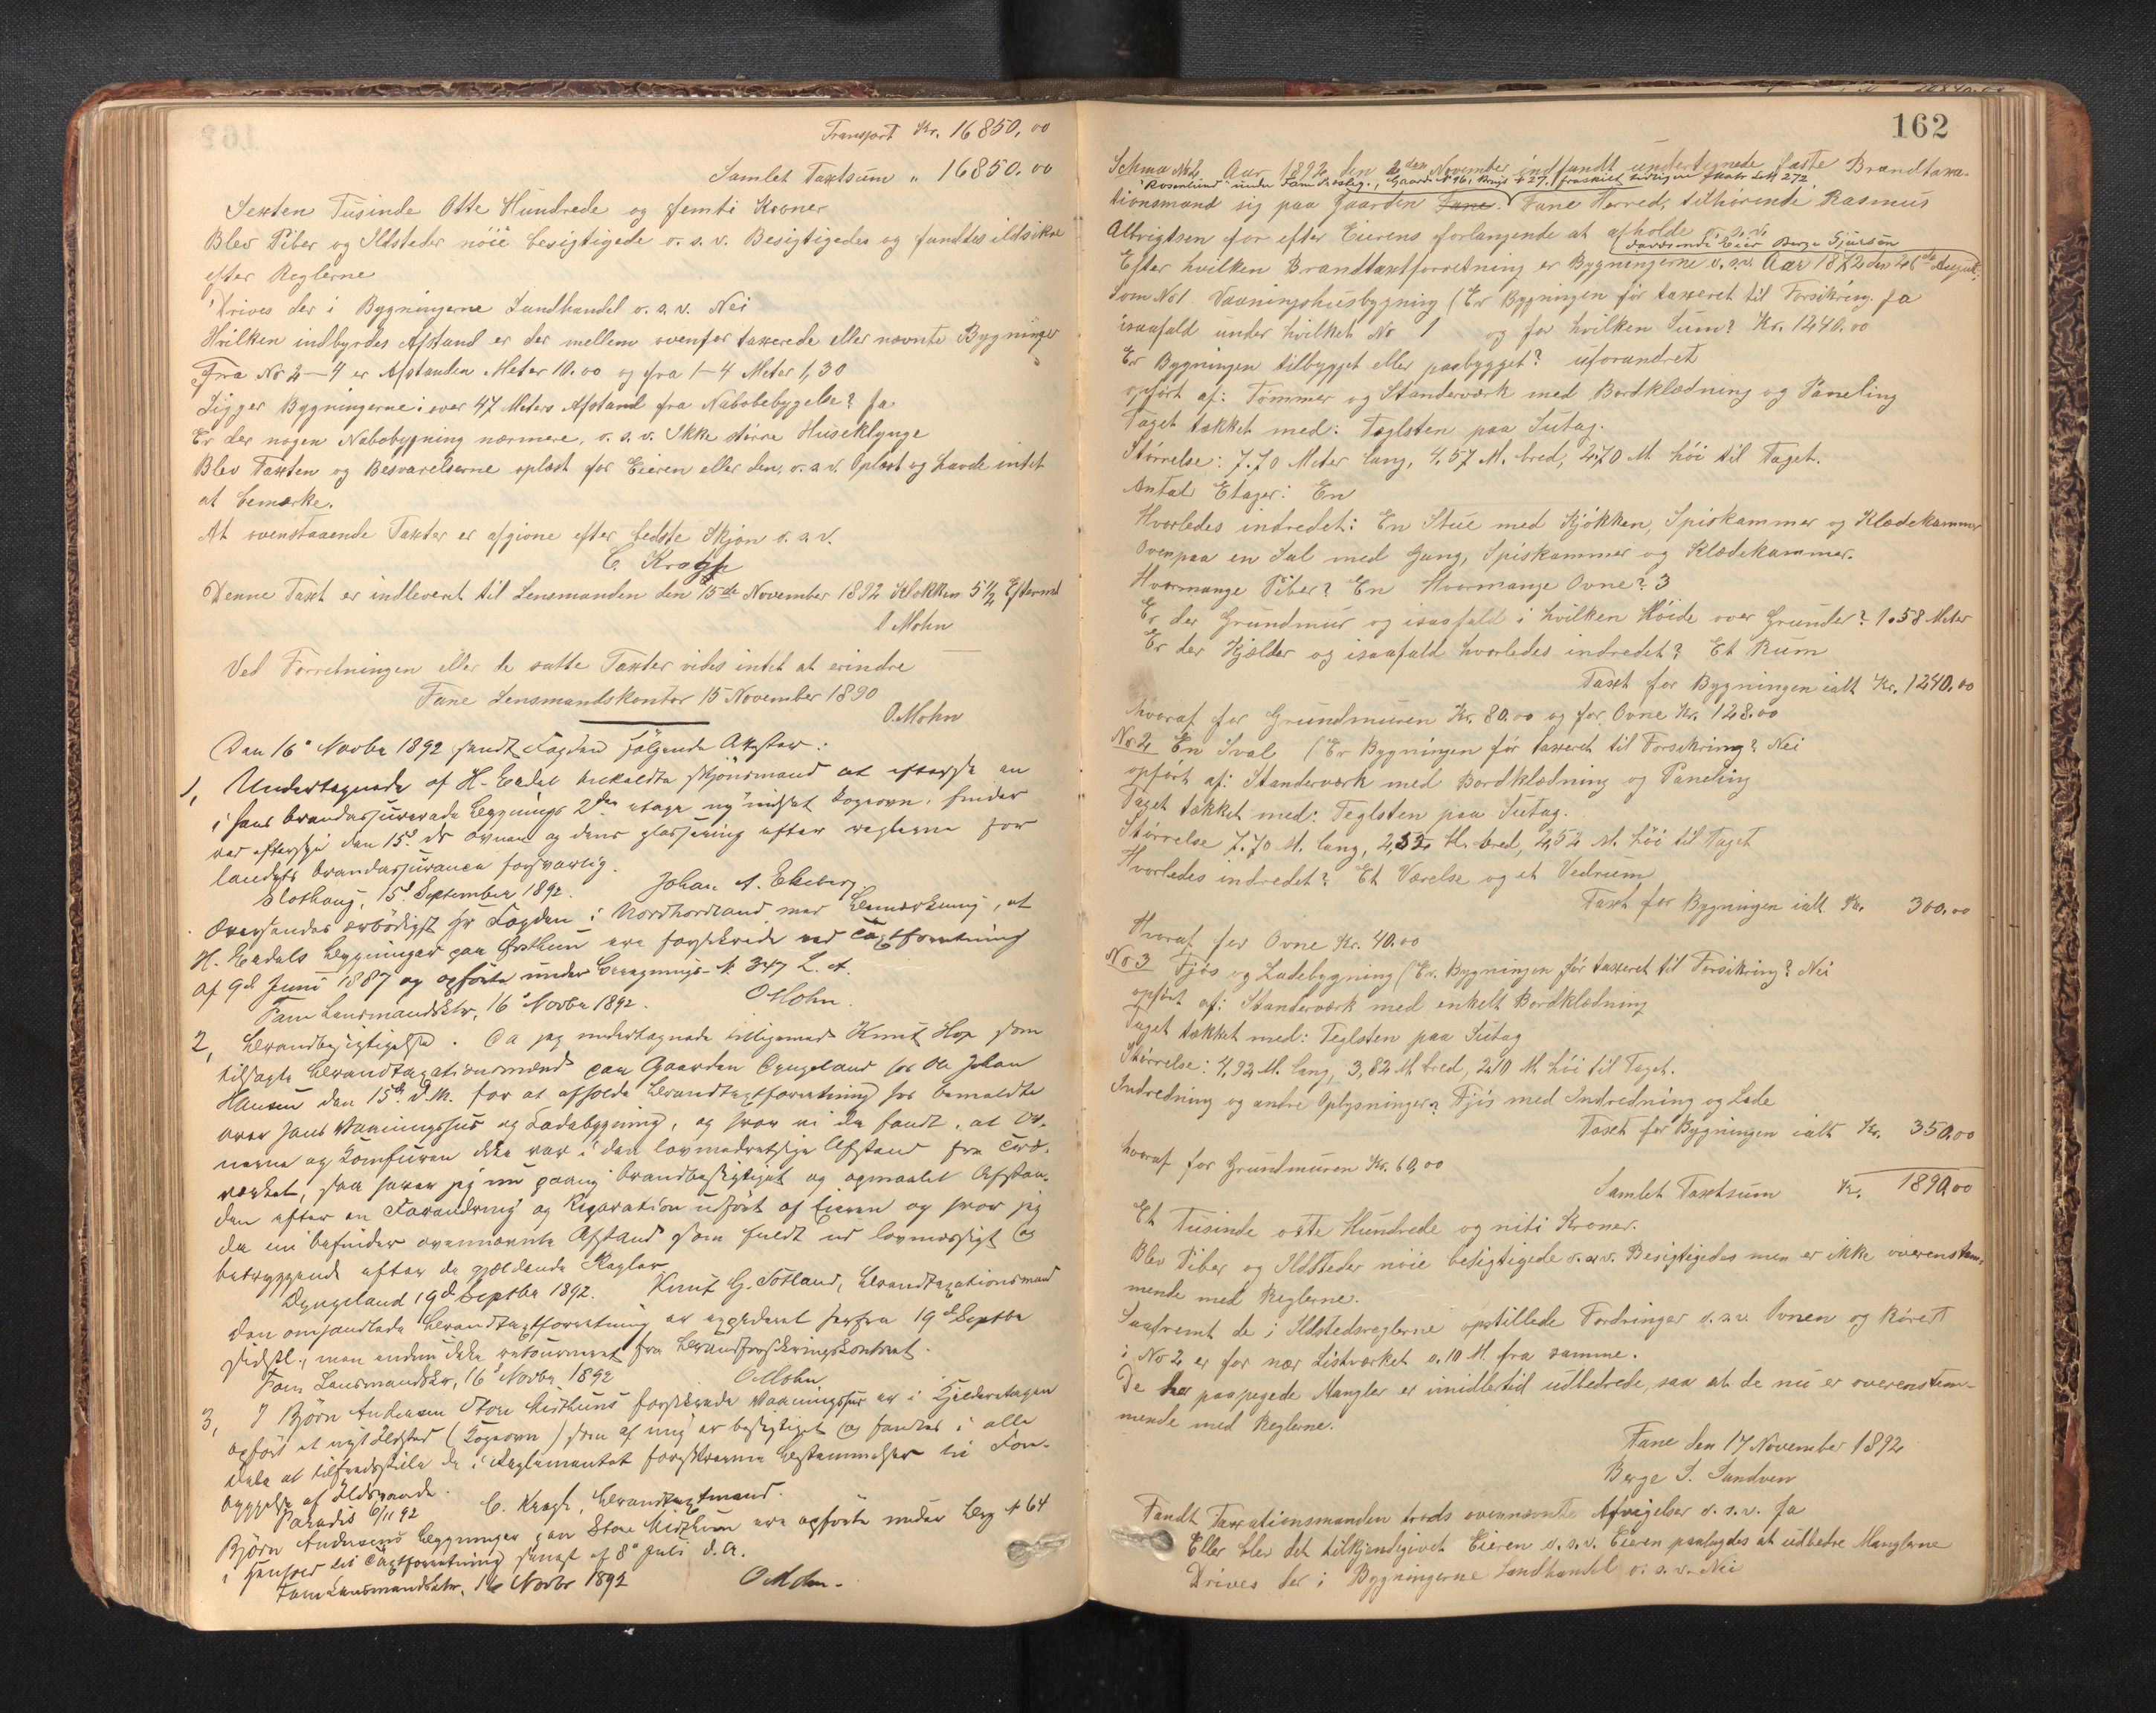 Transport Kr. 16850,00
Samlet Taxtsum " 16850.00
Sexten Tusinde Otte Hundrede og femti Kroner
Blev Piber og Ildsteder nöie besigtigede o. s. v. Besigtigedes og fandtes ildsikre
efter Reglerne
Drives der i Bygningerne Landhandel o. s. v. Nei
Hvilken indbyrdes Afstand er der mellem ovenfor taxerede eller nævnte Bygninger
Fra No 2-4 er Afstanden Meter 10.00 og fra 1-4 Meter 1,30
Ligger Bygningerne i over 47 Meters Afstand fra Nabobebygelse? Ja
Er der nogen Nabobygning nærmere, o. s. v. Ikke större Huseklynge
Blev Taxten og Besvarelserne oplæst for Eieren eller den, o. s. v. Oplæst og havde intet
at bemærke.
At ovenstaaende Taxter er afgivne efter bedste Skjön o. s. v.
C. Kragh
Denne Taxt er indleveret til Lensmanden den 15de November 1892 Klokken 5 1/2 Efterm
O Mohn
Ved Forretningen eller de satte Taxter vides intet at erindre
Fane Lensmandskontor 15 November 1890
O. Mohn
Den 16de Novbr 1892 sendt Fogden følgende Attester:
1, Undertegnede af H. Erdal tilkaldte skjönsmand at efterse en
i hans brandassurerede bygnings 2den etage ny indsat Kogeovn, finder
ved eftersyn den 15de ds ovnen og dens placering efter reglerne for
landets brandassurance forsvarlig.
Slothaug, 15de September 1892. Johan A. Ekeberg.
Oversendes ærbödigst Hr Fogden i Nordhordland med Bemærkning, at
H. Erdals bygninger paa ere forsikrede ved Taxtforretning
af 9de Juni 1887 og opförte under Beregnings-N. 347 L. A.
Fane Lensmandsktr, 16 Novbr 1892. O Mohn.
2, Brandbesigtigelse. Da jeg undertegnede tilligemed Knut Hop som
tilsagte Brandtaxationsmænd paa Gaarden Dyngeland hos Ole Johan
Hansen den 15de d.M. for at afholde Brandtaxtforretning hos bemeldte
over hans Vaaningshus og Ladebygning, og hvor vi da fandt, at Ov-
nerne og Komfuren ikke var i den lovmedretslige Afstand fra Træ-
værket, saa haver jeg nu paany brandbesigtiget og opmaalt Afstan-
den efter en Forandring og Reparation udfört af Eieren og hvor jeg
da nu befinder ovennævnte Afstand som fuldt ud lovmæssigt og
betryggende efter de gjældende Regler
Dyngeland 19de Septbr 1892. Knut G. Totland, Brandtaxationsmand
Den omhandlede Brandtaxtforretning er expederet herfra 19de Septbr
sidstl., men endnu ikke retourneret fra Brandforsikringskontoret.
Fane Lensmandsktr, 16 Novbr 1892 O Mohn
3, I Björn Andersen Store Milthuns forsikrede Vaaningshus er i Kjelderetagen
opfört et nyt Ildsted (Kogeovn) som af mig er besigtiget og fandtes i alle
dele at tilfredsstille de i Reglementet foreskrevne bestemmelser til Fore-
byggelse af Ildsvaade.
Paradis 6/11 92 C. Kragh, Brandtaxtmand.
Björn Andersens bygninger paa Store Milthun ere opförte under Beg N 64
i Henhold til Taxtforretning senest af 8de Juli d. A.
Fane Lensmandsktr, 16 Novbr 1892 O Mohn.
162
Schma No 2. Aar 1892 den 2den November indfandt undertegnede faste Brandtaxa-
"Rosenlund" under Fane Præsteg., Gaards No 46, Brugs No 27,
tionsmand sig paa Gaarden Fane Fane Herred, tilhörende Rasmus
Albrigtsen for efter Eierens forlangende at afholde o. s. v.
daværende Eier Berge Sjursen
Efter hvilken Brandtaxtforretning er Bygningerne o. s. v. Aar 1872 den 26de August
Som No 1. Vaaningshusbygning (Er Bygningen för taxeret til Forsikring. Ja
isaafald under hvilket No 1 og for hvilken Sum? Kr. 1240.00
Er Bygningen tilbygget eller paabygget? uforandret
opfört af: Tömmer og Standerværk med Bordklædning og Paneling
Taget tækket med: Teglsten paa Sutag.
Störrelse: 7.70 Meter lang, 4,57 M. bred, 2,70 M höi til Taget.
Antal Etager: En
Hvorledes indredet: En Stue med Kjökken, Spiskammer og Klædekammer
Ovenpaa en Sal med Gang, Spiskammer og Klædekammer.
Hvormange Piber? En Hvormange Ovne? 3
Er der Grundmur og isaafald i hvilken Höide over Grunden? 1.58 Meter
Er der Kjælder og isaafald hvorledes indredet? Et Rum
Taxt for Bygningen ialt Kr. 1240.00
hvoraf for Grundmuren Kr. 80.00 og for Ovne Kr. 128.00
No 2 En Sval (Er Bygningen för taxeret til Forsikring? Nei
opfört af: Standerværk med Bordklædning og Paneling
Taget tækket med: Teglsten paa Sutag.
Störrelse 7.70 M. lang, 2,52 M. bred, 2,52 M. höi til Taget
Hvorledes indredet? Et Værelse og et Vedrum
Taxt for Bygningen ialt Kr. 300.00
Hvoraf for Ovne Kr. 40.00
No 3 Fjös og Ladebygning (Er Bygningen för taxeret til Forsikring? Nei
opfört af: Standerværk med enkelt Bordklædning
Taget tækket med: Teglsten paa Sutag
Störrelse: 4,92 M. lang, 3,82 M. bred, 2,10 M. höi til Taget.
Indredning og andre Oplysninger? Fjös med Indredning og Lade
Taxt for Bygningen ialt Kr. 350.00
hvoraf for Grundmuren Kr. 60,00
Samlet Taxtsum Kr. 1890.00
Et Tusinde otte Hundrede og niti Kroner.
Blev Piber og Ildsteder nöie besigtigede o. s. v. Besigtigedes men er ikke overenstem-
mende med Reglerne.
Saafremt de i Ildstedsreglerne opstillede Fordringer o. s. v. Ovnen og Röret
i No 2 er for nær Listværket 0.10 M. fra samme.
De her paapegede Mangler er imidlertid udbedrede, saa at de nu er overenstem-
mende med Reglerne.
Fane den 17 November 1892
Berge S. Sandven
Fandt Taxationsmanden trods ovennævnte Afvigelser o. s. v. Ja
Eller blev det tilkjendegivet Eieren o. s. v. Eieren paalagdes at udbedre Manglerne
Drives der i Bygningerne Landhandel o. s. v. Nei